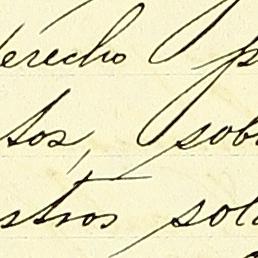 derecho p
tos, sob
stros sol